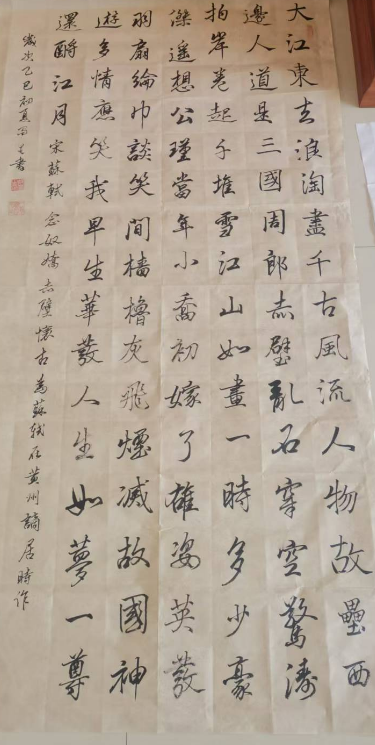 大江東去浪淘盡千古風流人物故壘西
邊人道是三國周郎赤壁亂石穿空驚濤
拍岸卷起千堆雪江山如畫一時多少豪
傑遥想公瑾當年小喬初嫁了雄姿英發
羽扇綸巾談笑間檣櫓灰飛煙滅故國神
遊多情應笑我早生華發人生如夢一尊
還酹江月 宋蘇軾念奴嬌赤壁懷古為蘇軾在黃州謫居時作
歲次乙巳初夏書